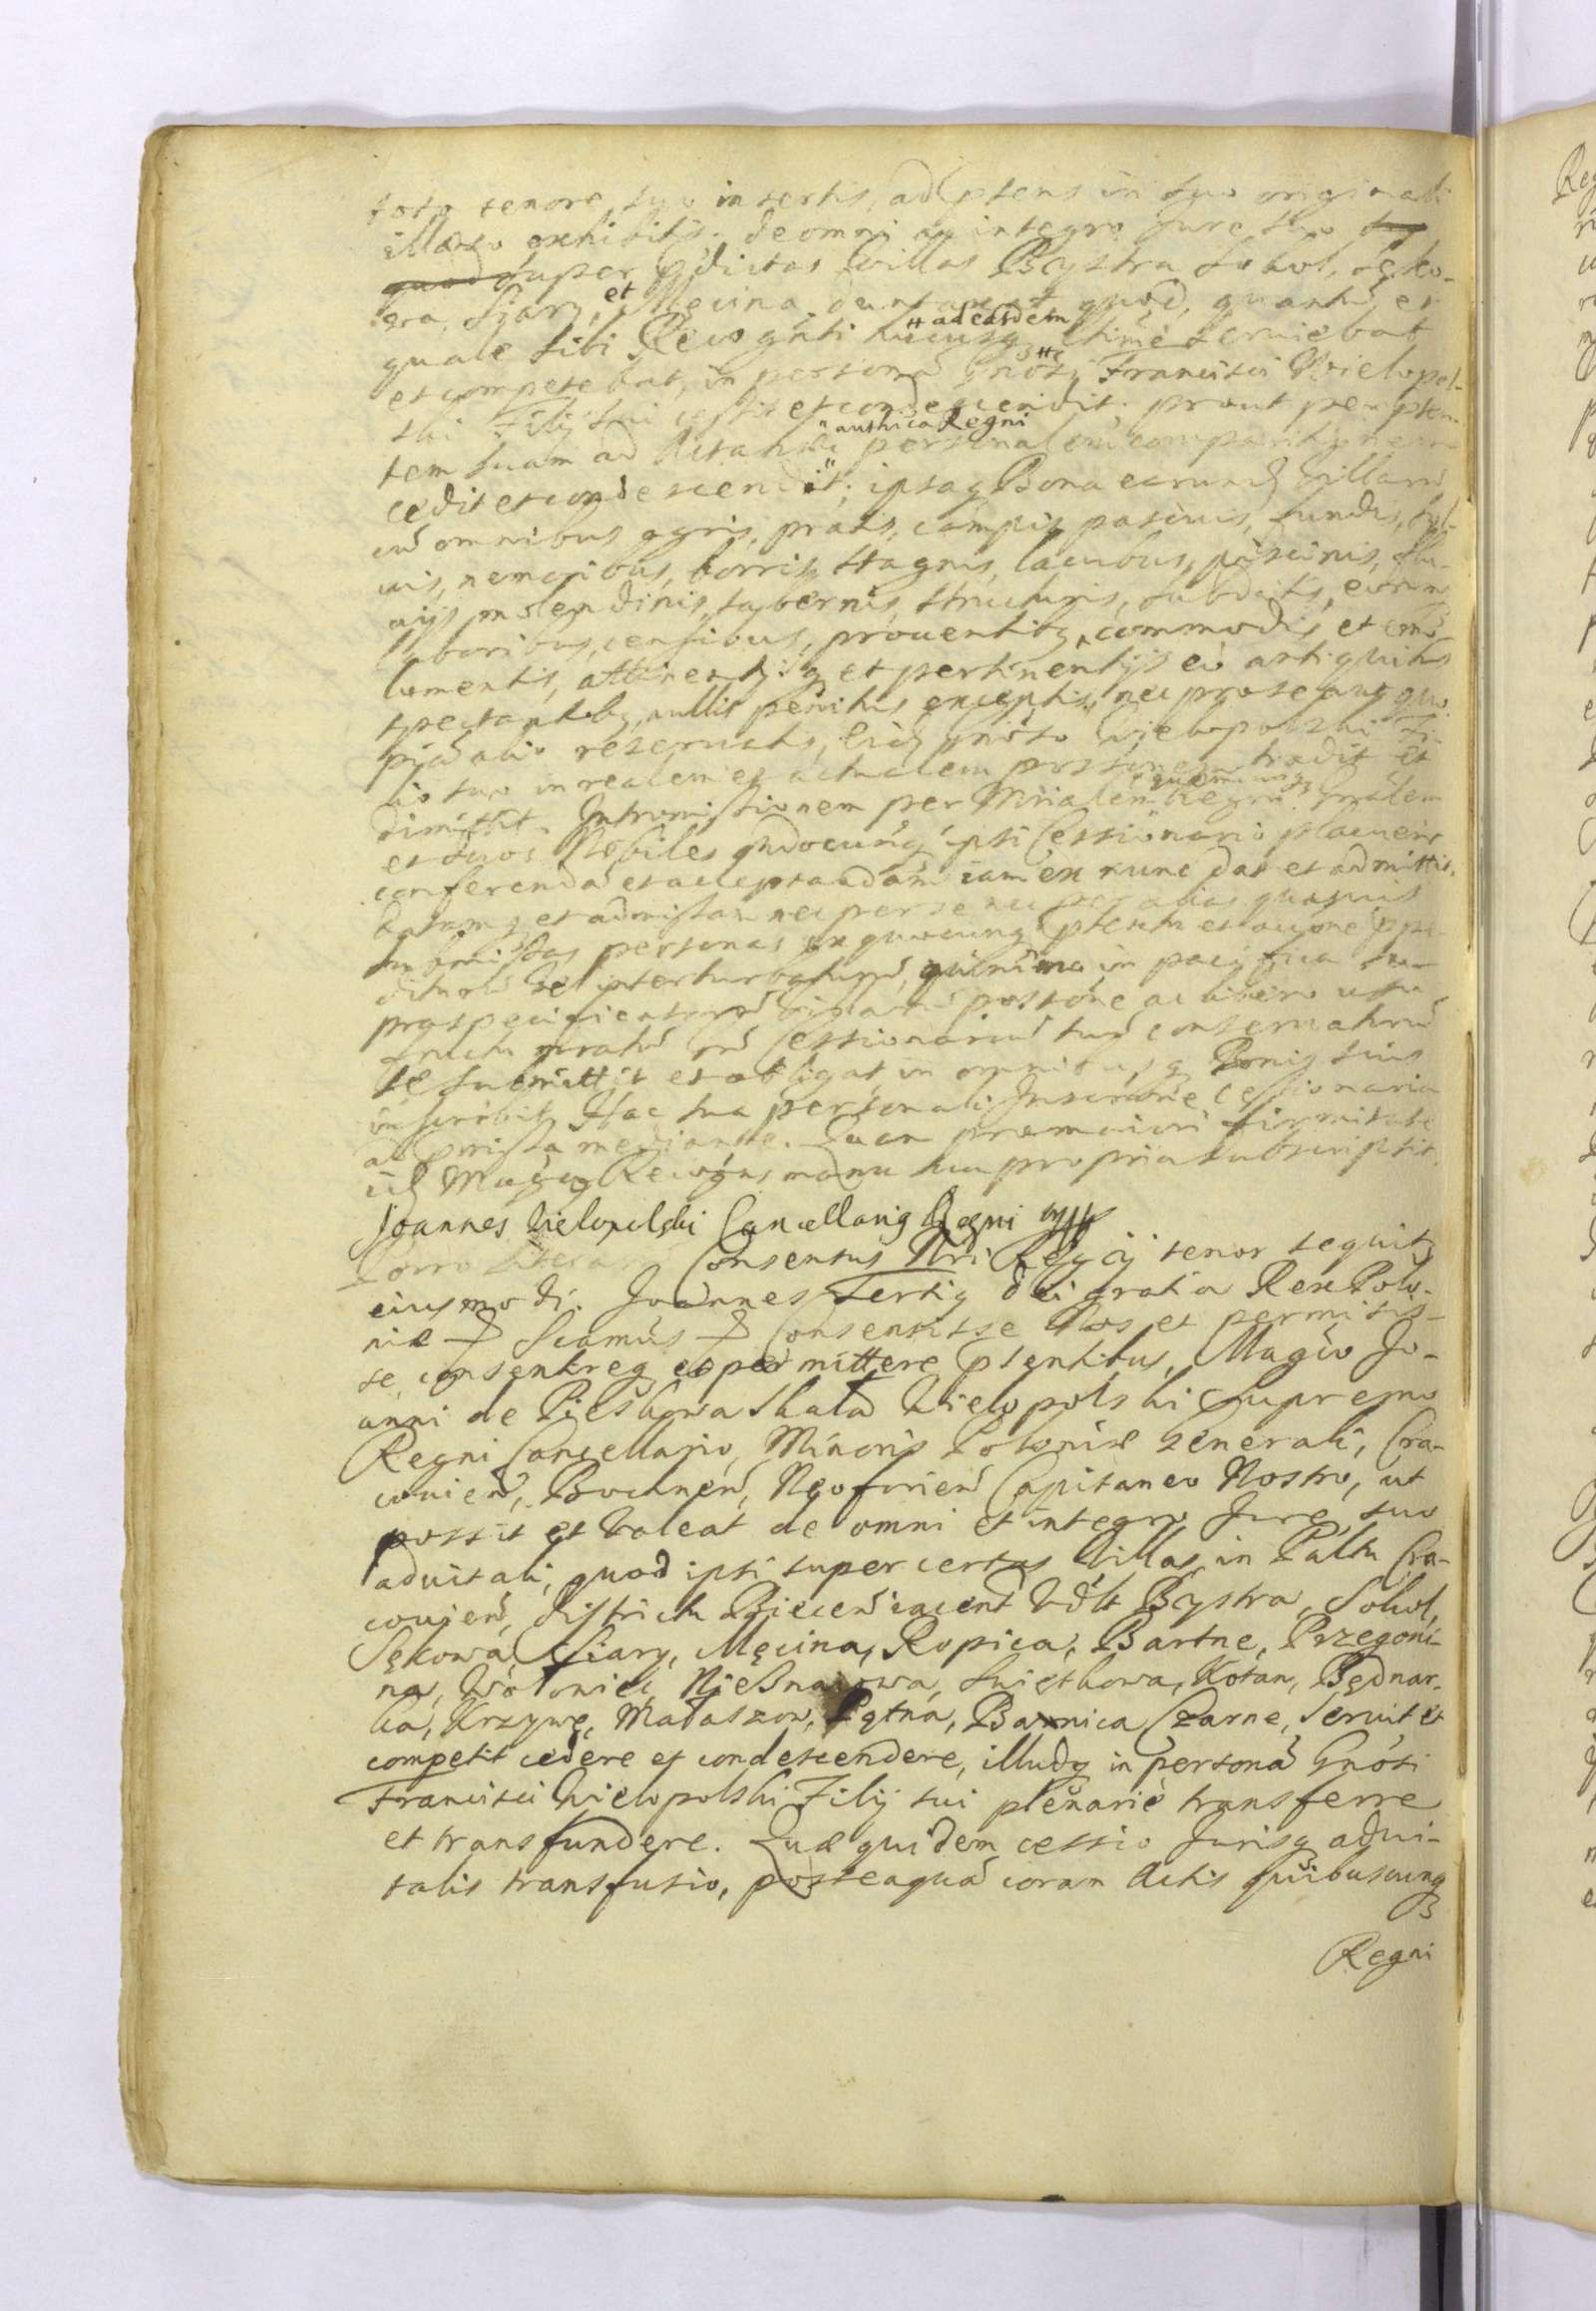 toto tenore suo insertis, ad pntens in suo originali
illæso exhibitis. de omni ac integro Jure suo
super pdictas Villas Bystra Sokol, Sęko-
wa, Siary, et Męcina duntaxat quod, quantū et
quale sibi Recognti hucusq ad easdem ltimè serviebat
et competebat, in personā Gnosi Francisci Wielopol-
ski Filij sui cessit et condescendit, prout per pntem
tem suam ad Acta authica Regni personalem comparitionem
cedit et condescendit; ipsaq Bona earund Villarū
cū omnibus agris, pratis, campis pascuis, fundis, syl-
uis, nemoribus, borris, stagnis, lacubus, piscinis, flu-
uijs molendinis, tabernis, structuris, subditis, eorumq
laboribus, censibus, prouentibq, commodis, et emo-
lumentis, attinentijsq et pertinentijs eò antiquitus
spectantibq, nullis penitus exceptis, nec pro se aut quo-
piā alio reservatis, eidē Gnoso Wielopolski Fi-
lio suo in realem et actualem pssionem tradit et
dimittit. Intromissionem per Mrialem Regni quemcunq Gnralem
et duos Nobiles quoscunq ipsi Cessionario placuerit
conferendā et acceptandam iam ex nunc dat et admittit.
datamq et admissam nec per se nec per alias quasuis
submissas personas ex quocunq ptextu et occone ppe-
diturū vel interturbaturū, quinimo in pacifica su-
praspecificatarū Villarū possone ac libero usu
fructu pfatū Gnosū Cessionariū suū conseruaturū
se submittit et obligat, in omnibusq Bonis suis
inscribit, Hac sua personali Inscrone cessionaria
ad pmissa mediante. Quam pro maiori firmitate
idē Magcus Recogns manu sua propria subscripsit.
Joannes Wielopolski Cancellariq Regni mpp
Porro Literarū Consensus Nri Regij tenor sequitr
eiusmodi. Joannes Tertiq Dei gratia Rex Polo-
niæ &c Significamus &c Consensisse Nos et permisis-
se, consentireq et permittere pntibus, Magco Jo-
anni de Pieskowa Skala Wielopolski Supremo
Regni Cancellario, Minoris Poloniæ Generali, Cra-
couien, Bochnen, Neoforien Capitaneo Nostro, ut
possit et valeat de omni et integro Jure suo
aduitali, quod ipsi super certas Villas in Pāltu Cra-
couien, districtu Biecen iacent vdlt Bystra, Sokol,
Sękowa, Siary, Męcina, Ropica, Bartne, Przegoni-
na, Wołoniec, Nieznaiowa, Swiętkowa, Kotan, Bednar-
ka, Krzywe, Małaszow, Pętna, Banica Czarne, Seruit et
competit cedere et condescendere, illudq in personā Gnosi
Francisci Wielopolski Filij sui plenariè transferre
et transfundere. Quæ quidem cessio Jurisq adui-
talis transfusio, posteaquā coram Actis quibuscunq
Regni